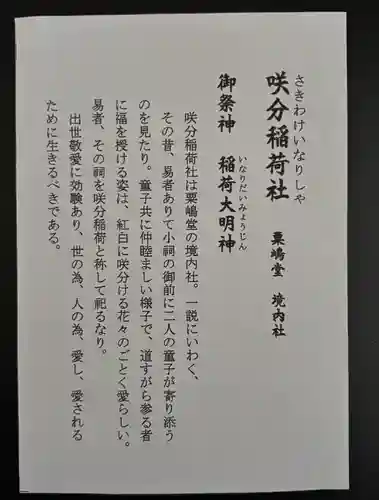 さきわけいなりしゃ
咲分稲荷社 粟嶋堂 境内社
いなりだいみょうじん
御祭神 稲荷大明神
咲分稲荷社は粟嶋堂の境内社。一説にいわく、
その昔、易者ありて小祠の御前に二人の童子が寄り添う
のを見たり。童子共に仲睦ましい様子で、道すがら参る者
に福を授ける姿は、紅白に咲分ける花々のごとく愛らしい。
易者、その祠を咲分稲荷と称して祀るなり。
出世敬愛に効験あり、世の為、人の為、愛し、愛される
ために生きるべきである。